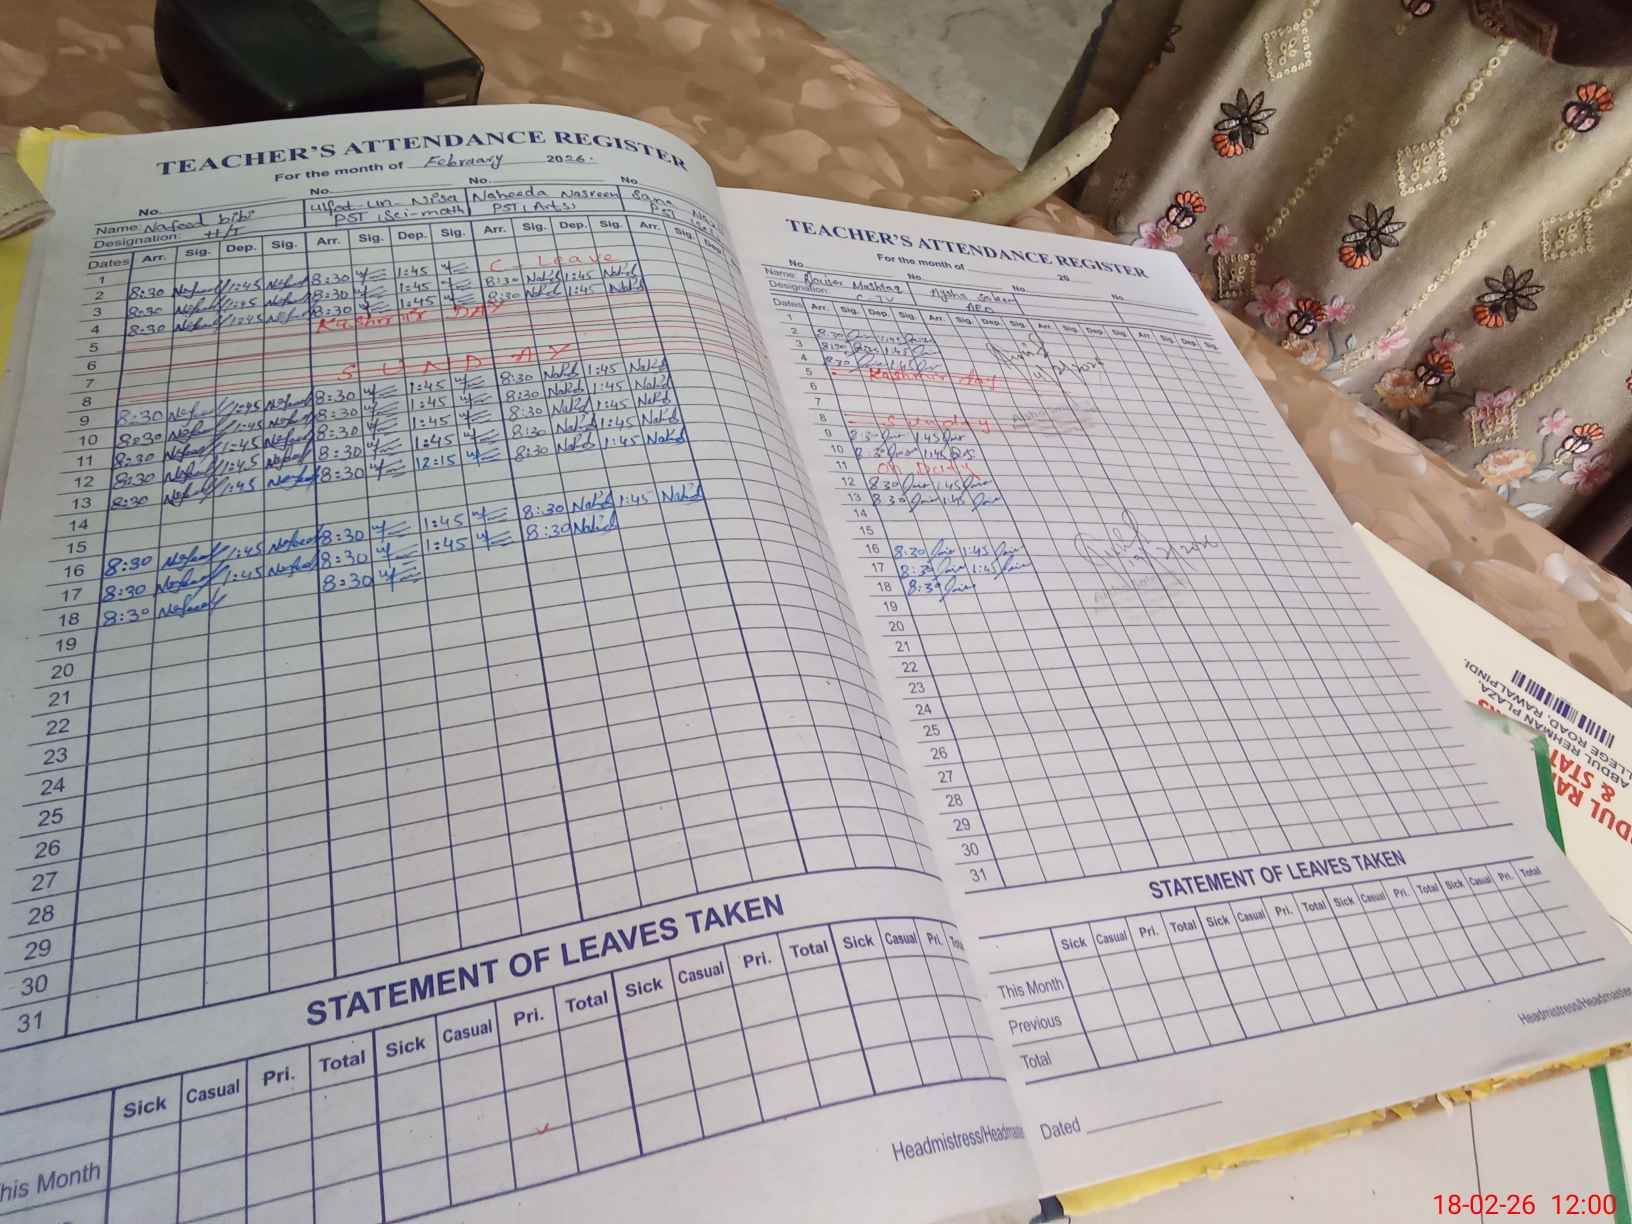 TEACHER'S ATTENDANCE REGISTER
For the month of February 2026.
No. No. No. No
Name: Nafeed bibi Ulfat-un-Nisa Naheeda Nasreen
Designation: H/T PST (Sci-math) PST (Arts) PST
Dates Arr. Sig. Dep. Sig. Arr. Sig. Dep. Sig. Arr. Sig. Dep. Sig. Arr. Sig. Dep.
1
2 8:30 Nafeed 1:45 Nafeed 8:30 1:45 C. Leave
3 8:30 Nafeed 1:45 Nafeed 8:30 1:45 8:30 Nahid 1:45 Nahid
4 8:30 Nafeed 1:45 Nafeed 8:30 1:45 8:30 Nahid 1:45 Nahid
5 Kashmir DAY
6
7
8 SUNDAY
9 8:30 Nafeed 1:45 Nafeed 8:30 1:45 8:30 Nahid 1:45 Nahid
10 8:30 Nafeed 1:45 Nafeed 8:30 1:45 8:30 Nahid 1:45 Nahid
11 8:30 Nafeed 1:45 Nafeed 8:30 1:45 8:30 Nahid 1:45 Nahid
12 8:30 Nafeed 1:45 Nafeed 8:30 1:45 8:30 Nahid 1:45 Nahid
13 8:30 Nafeed 1:45 Nafeed 8:30 12:15 8:30 Nahid 1:45 Nahid
14
15
16 8:30 Nafeed 1:45 Nafeed 8:30 1:45 8:30 Nahid 1:45 Nahid
17 8:30 Nafeed 1:45 Nafeed 8:30 1:45 8:30 Nahid
18 8:30 Nafeed 8:30
19
20
21
22
23
24
25
26
27
28
29
30
31
STATEMENT OF LEAVES TAKEN
Sick Casual Pri. Total Sick Casual Pri. Total Sick Casual Pri. Total Sick Casual Pri.
This Month
Headmistress/Headmaster
TEACHER'S ATTENDANCE REGISTER
For the month of 20
No. No. No No
Name: Mushtaq Aysha Saleem
Designation:
Dates Arr. Sig. Dep. Sig. Arr. Sig. Dep. Sig. Arr. Sig. Dep. Sig. Arr. Sig. Dep. Sig.
1
2 8:30 1:45
3 8:30 1:45
4 8:30 1:45
5 Kashmir day
6
7
8 Sunday
9 8:30 1:45
10 8:30 1:45
11 On Duty
12 8:30 1:45
13 8:30 1:45
14
15
16 8:30 1:45
17 8:30 1:45
18 8:30
19
20
21
22
23
24
25
26
27
28
29
30
31
STATEMENT OF LEAVES TAKEN
Sick Casual Pri. Total Sick Casual Pri. Total Sick Casual Pri. Total Sick Casual Pri. Total
This Month
Previous
Total
Headmistress/Headmaster
Dated
& STAT
ABDUL REHMAN PLAZA,
LLEGE ROAD, RAWALPINDI.
18-02-26 12:00